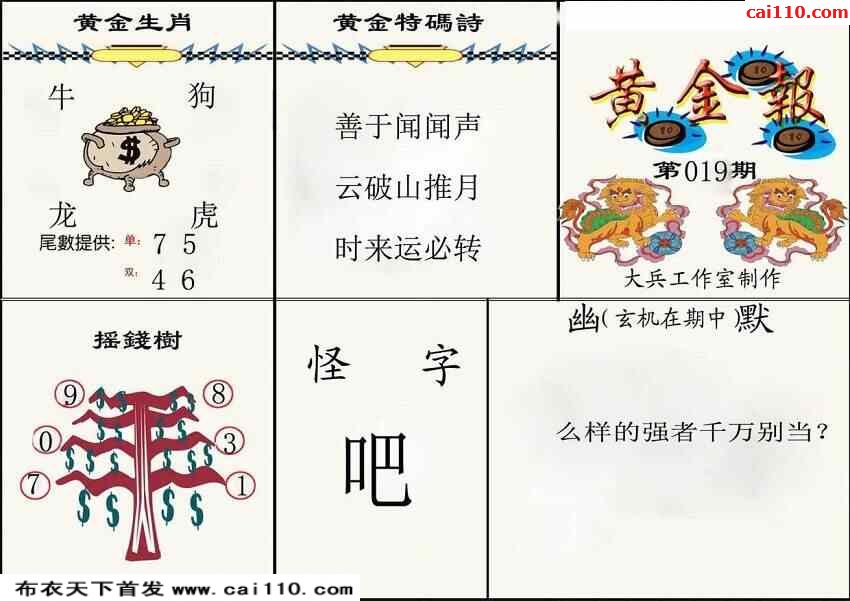 cai110.com
黄金生肖
牛 狗
$
龙 虎
尾數提供: 单: 7 5
双: 4 6
黄金特碼詩
善于闻闻声
云破山推月
时来运必转
黄金報
10
10
10
第019期
大兵工作室制作
摇錢樹
9 8
0 3
7 1
$ $ $ $
$ $ $ $
$ $ $ $
$ $ $ $
怪 字
吧
幽(玄机在期中)默
么样的强者千万别当?
布衣天下首发 www.cai110.com